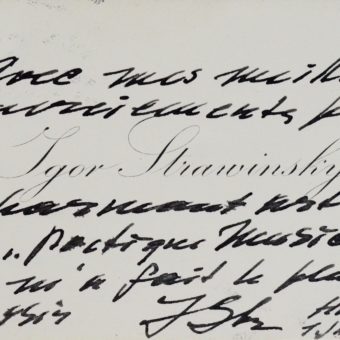 Avec mes meill
merciements p
Igor Strawinsky
harmant
„Poétique Music
m'a fait le pla
ISt